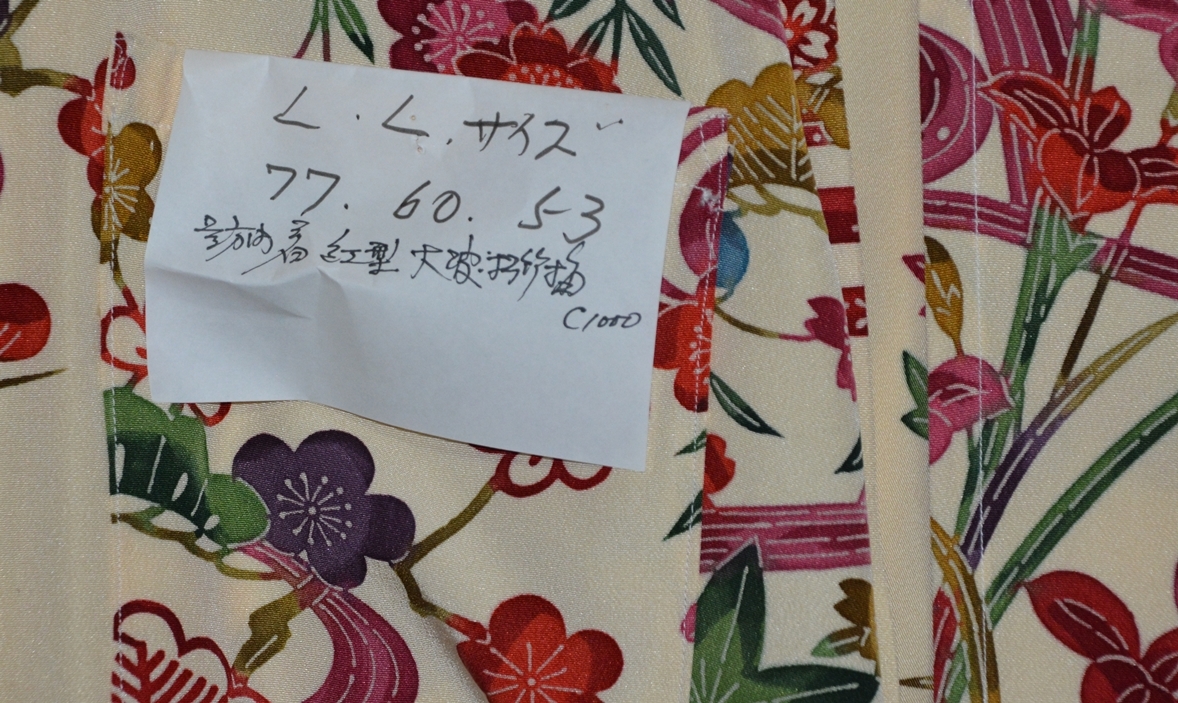 L.L.サイズ
77. 60. 53
訪問着 紅型 大波松竹梅
C1000